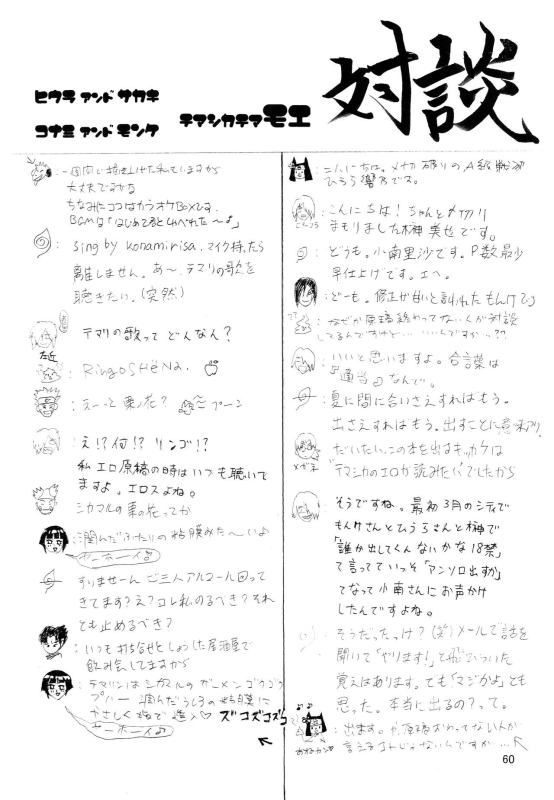 対談
ヒウラ アンド サカキ
コナミ アンド モンケ
テマシカテマ モエ
こんにちは。メ切破りのA級戦犯
ひうら響乃です。
こんにちは！ちゃんとメ切り
まもりました榊美也です。
どうも。小南里沙です。P数最少
早仕上げです。エヘ。
どーも。修正が甘いと言われたもんけ
なぜか原稿終わってない人が対談
してるんですけど…いいんですか？
いいと思いますよ。合言葉は
『適当』なんで。
夏に間に合いさえすればもう。
出さえすればもう。出すことに意味アリ。
だいたいこの本を出すキッカケは
"テマシカのエロが読みたい"でしたから
メガネ
そうですね。最初3月のシティで
もんけさんとひうらさんと榊で
「誰か出してくんないかな18禁」
て言ってていっそ「アンソロ出すか」
てなって小南さんにお声かけ
したんですよね。
そうだったっけ？(笑)メールで話を
聞いて「やります！」と飛びついた
覚えはあります。でも「マジかよ」とも
思った。本当に出るの？って。
出ます。か、原稿おわってない人が
言えるこんじゃないんですが…
一週間
大丈夫ですかね
ちなみにココはカラオケBOXです。
BGMは「はじめて君としゃべった〜♪」
sing by konamirisa. マイク持ったら
離しません。あ〜、テマリの歌を
聴きたい。(突然)
テマリの歌って どんなん？
左近
RingoSHëNa.
えーっと栗ノ花？ プーン
え!?何!? リンゴ!?
私 エロ原稿の時はいつも聴いて
ますよ。エロスよね。
シカマルの栗の花ってか
潤んだふたりの粘膜みた〜いよ
ヤーホーイ♪
すいませーん ご三人アルコール回って
きてます？え？コレ私のるべき？それ
とも止めるべき？
いつも打ち合せとしょうした居酒屋で
飲み会してますから
テマリンはシカマルのガーメンゴクゴク
プハー 潤んだうしろの粘膜に
やさしく指で進入♡ ズコズコズコ
ヤーホーイ♪
60